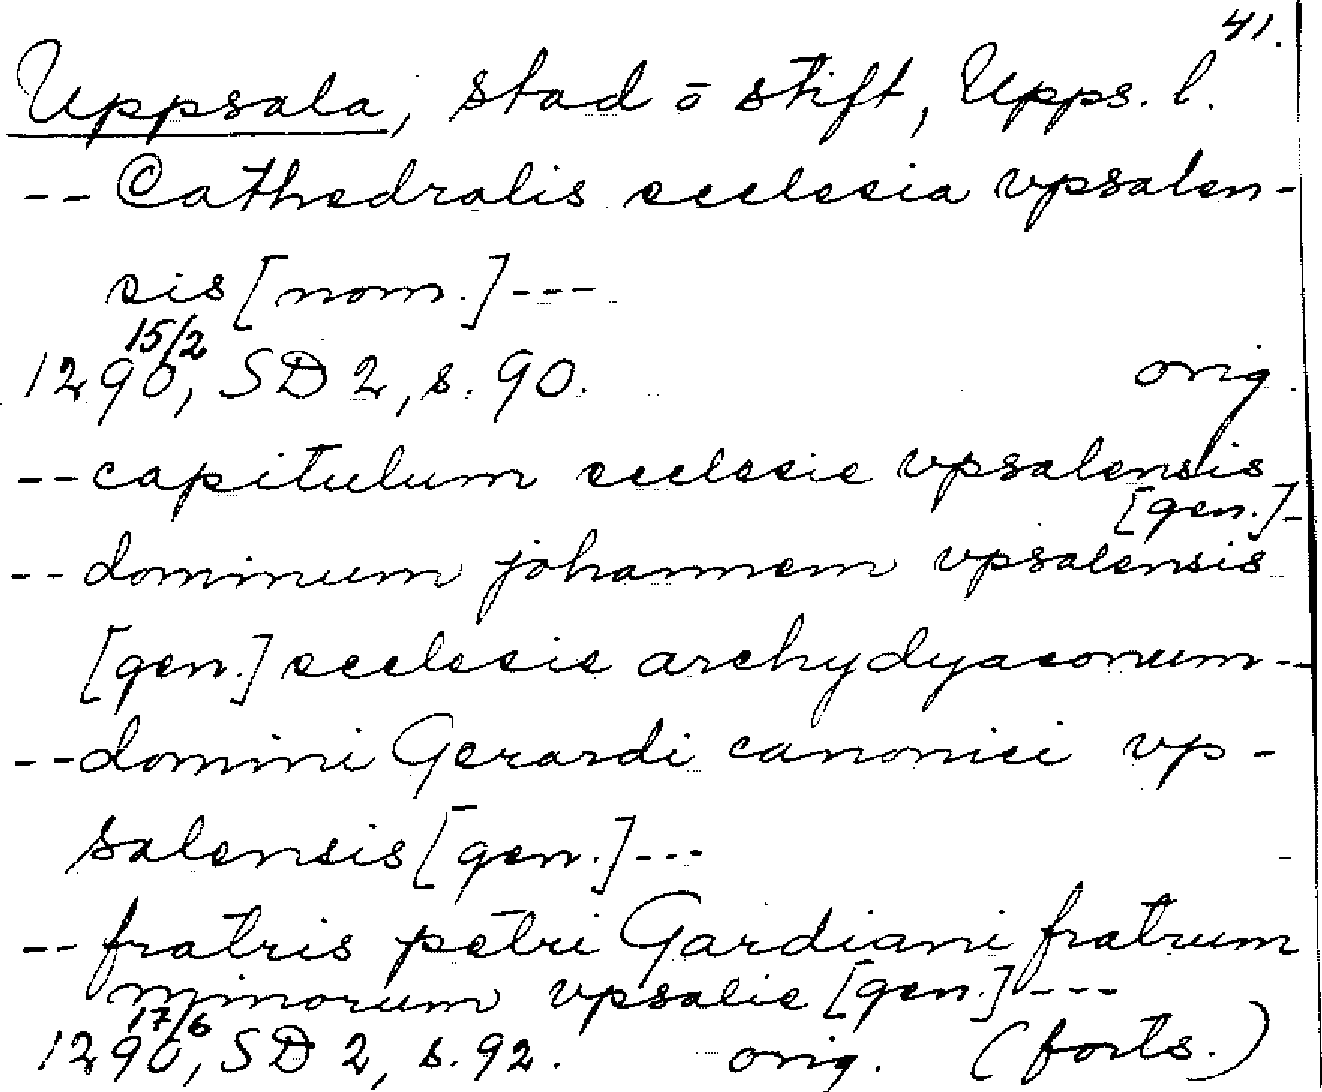 41.
Uppsala, stad o stift, Upps. l.
-- Cathedralis ecclesia vpsalen-
sis [nom.] ---
15/2
1290, SD 2, s. 90. orig.
-- capitulum ecclesie vpsalensis
[gen.] -
-- dominum johannem vpsalensis
[gen.] ecclesie archydyaconum --
-- domini Gerardi canonici vp-
salensis [gen.] ---
-- fratris petri Gardiani fratrum
minorum vpsalie [gen.] ---
17/6
1290, SD 2, s. 92. orig. (forts.)